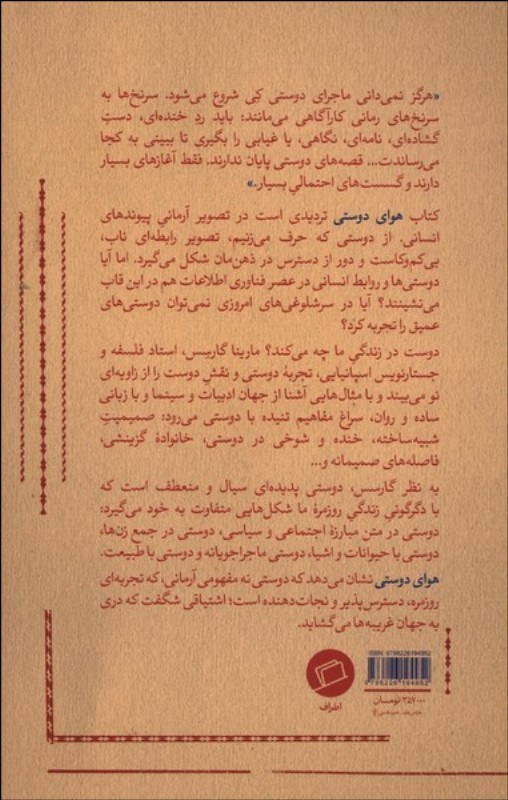 «هرگز نمی‌دانی ماجرای دوستی کِی شروع می‌شود. سرنخ‌ها به
سرنخ‌های رمانی کارآگاهی می‌مانند؛ باید ردِ خنده‌ای، دستِ
گشاده‌ای، نامه‌ای، نگاهی، یا غیابی را بگیری تا ببینی به کجا
می‌رساندت... قصه‌های دوستی پایان ندارند. فقط آغازهای بسیار
دارند و گسست‌های احتمالیِ بسیار.»
کتاب هوای دوستی تردیدی است در تصویر آرمانیِ پیوندهای
انسانی. از دوستی که حرف می‌زنیم، تصویر رابطه‌ای ناب،
بی‌کم‌وکاست و دور از دسترس در ذهن‌مان شکل می‌گیرد. اما آیا
دوستی‌ها و روابط انسانی در عصر فناوری اطلاعات هم در این قاب
می‌نشینند؟ آیا در سرشلوغی‌های امروزی نمی‌توان دوستی‌های
عمیق را تجربه کرد؟
دوست در زندگی ما چه می‌کند؟ مارینا گارسِس، استاد فلسفه و
جستارنویس اسپانیایی، تجربهٔ دوستی و نقشِ دوست را از زاویه‌ای
نو می‌بیند و با مثال‌هایی آشنا از جهان ادبیات و سینما و با زبانی
ساده و روان، سراغ مفاهیم تنیده با دوستی می‌رود: صمیمیتِ
شبیه‌ساخته، خنده و شوخی در دوستی، خانوادهٔ گزینشی،
فاصله‌های صمیمانه و...
به نظر گارسس، دوستی پدیده‌ای سیال و منعطف است که
با دگرگونیِ زندگیِ روزمرهٔ ما شکل‌هایی متفاوت به خود می‌گیرد:
دوستی در متن مبارزهٔ اجتماعی و سیاسی، دوستی در جمع زن‌ها،
دوستی با حیوانات و اشیا، دوستی ماجراجویانه و دوستی با طبیعت.
هوای دوستی نشان می‌دهد که دوستی نه مفهومی آرمانی، که تجربه‌ای
روزمره، دسترس‌پذیر و نجات‌دهنده است؛ اشتیاقی شگفت که دری
به جهان غریبه‌ها می‌گشاید.
ISBN: 9786226194952
9786226194952
۳۵۷۰۰۰ تومــان
اطراف